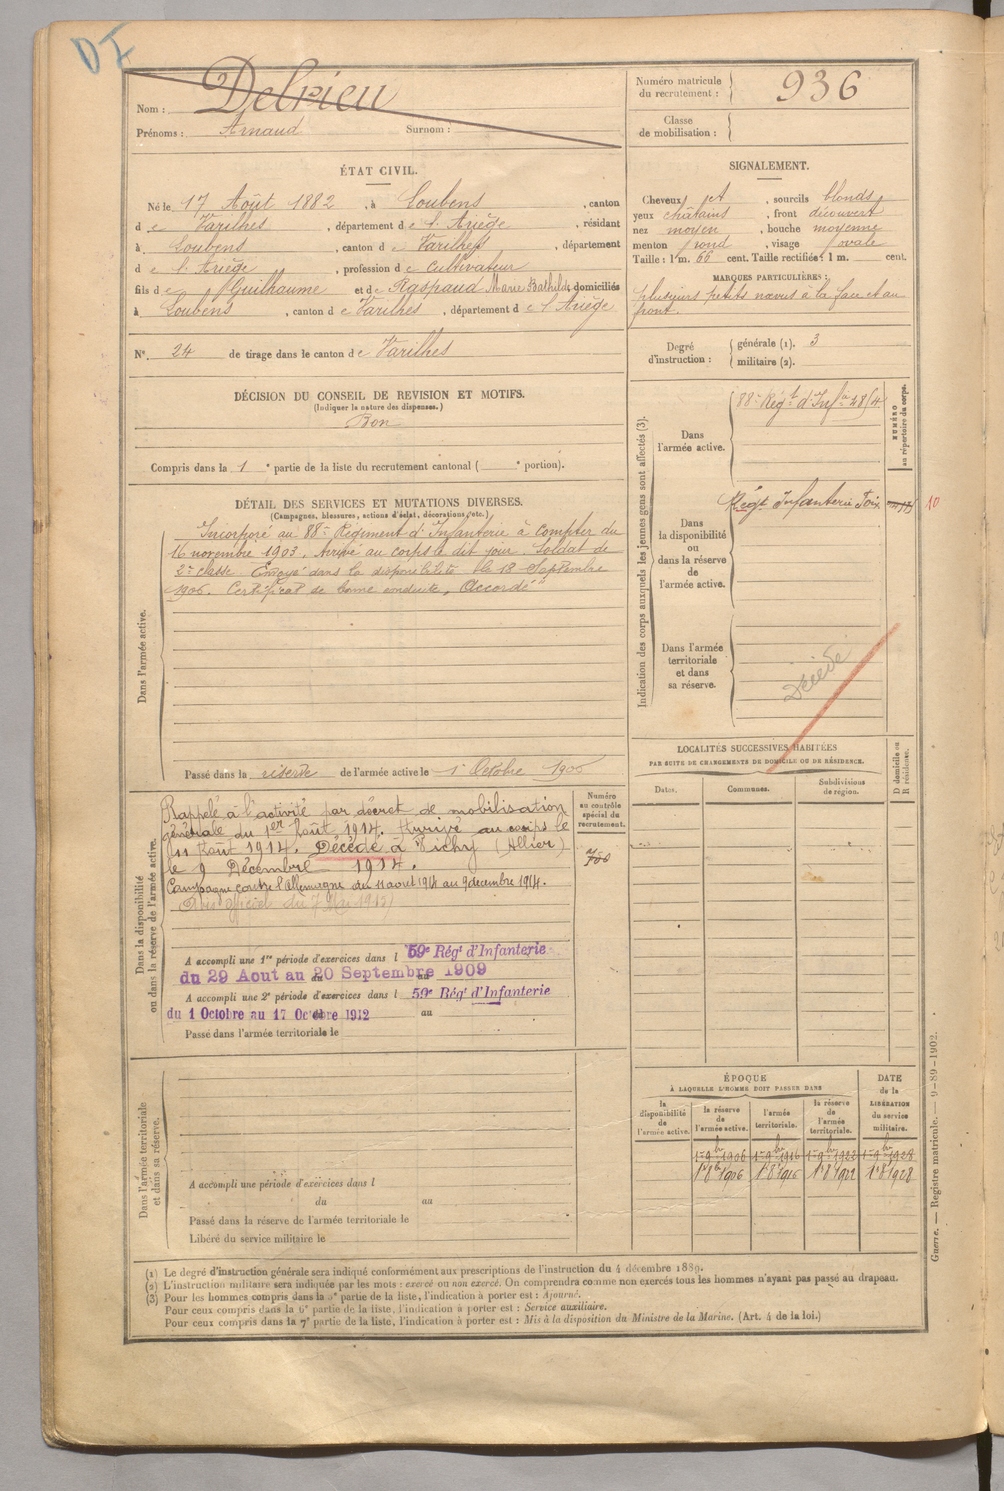 DI
Nom : Delrieu
Prénoms : Arnaud Surnom :
Numéro matricule du recrutement : 936
Classe de mobilisation :
ÉTAT CIVIL.
Né le 17 Août 1882, à Loubens, canton
d e Varilhes, département d e l'Ariège, résidant
à Loubens, canton d e Varilhes, département
d e l'Ariège, profession d e cultivateur
fils d e Guilhaume et d e Raspaud Marie Bathilde domiciliés
à Loubens, canton d e Varilhes, département d e l'Ariège
N° 24 de tirage dans le canton d e Varilhes
SIGNALEMENT.
Cheveux et, sourcils blonds
yeux châtains, front découvert
nez moyen, bouche moyenne
menton rond, visage ovale
Taille : 1 m. 66 cent. Taille rectifiée : 1 m. cent.
MARQUES PARTICULIÈRES :
plusieurs petits nævus à la face et au
front.
Degré d'instruction : générale (1). 3
militaire (2).
DÉCISION DU CONSEIL DE REVISION ET MOTIFS.
(Indiquer la nature des dispenses.)
Bon
Compris dans la 1e partie de la liste du recrutement cantonal ( e portion).
DÉTAIL DES SERVICES ET MUTATIONS DIVERSES.
(Campagnes, blessures, actions d'éclat, décorations, etc.)
Dans l'armée active.
Incorporé au 88e Régiment d'Infanterie à compter du
16 novembre 1903. Arrivé au corps le dit jour. Soldat de
2e classe. Envoyé dans la disponibilité le 18 Septembre
1906. Certificat de bonne conduite "Accordé"
Passé dans la réserve de l'armée active le 1er Octobre 1906
Indication des corps auxquels les jeunes gens sont affectés (3).
NUMÉRO au répertoire du corps.
Dans l'armée active.
88e Régt d'Infie 4854
Dans la disponibilité ou dans la réserve de l'armée active.
Régt Infanterie Foix
10
Dans l'armée territoriale et dans sa réserve.
Décédé
LOCALITÉS SUCCESSIVES HABITÉES
PAR SUITE DE CHANGEMENTS DE DOMICILE OU DE RÉSIDENCE.
Dates.
Communes.
Subdivisions de région.
D domicile ou R résidence.
Dans la disponibilité ou dans la réserve de l'armée active.
Numéro au contrôle spécial du recrutement.
700
Rappelé à l'activité par décret de mobilisation
générale du 1er Août 1914. Arrivé au corps le
11 Août 1914. Décédé à Vichy (Allier)
le 9 Décembre 1914.
Campagne contre l'Allemagne du 11 aout 1914 au 9 decembre 1914.
(Avis officiel du 7 Mai 1915)
A accompli une 1re période d'exercices dans l 59e Régt d'Infanterie
du 29 Aout au 20 Septembre 1909
A accompli une 2e période d'exercices dans l 59e Régt d'Infanterie
du 1 Octobre au 17 Octobre 1912 au
Passé dans l'armée territoriale le
Dans l'armée territoriale et dans sa réserve.
A accompli une période d'exercices dans l
du au
Passé dans la réserve de l'armée territoriale le
Libéré du service militaire le
ÉPOQUE
À LAQUELLE L'HOMME DOIT PASSER DANS
DATE de la LIBÉRATION du service militaire.
la disponibilité de l'armée active.
la réserve de l'armée active.
l'armée territoriale.
la réserve de l'armée territoriale.
1er 9bre 1906 1er 9bre 1916 1er 9bre 1922 1er 9bre 1928
1er 8bre 1906 1er 8bre 1916 1er 8 1922 1er 8 1928
(1) Le degré d'instruction générale sera indiqué conformément aux prescriptions de l'instruction du 4 décembre 1889.
(2) L'instruction militaire sera indiquée par les mots : exercé ou non exercé. On comprendra comme non exercés tous les hommes n'ayant pas passé au drapeau.
(3) Pour les hommes compris dans la 5e partie de la liste, l'indication à porter est : Ajourné.
Pour ceux compris dans la 6e partie de la liste, l'indication à porter est : Service auxiliaire.
Pour ceux compris dans la 7e partie de la liste, l'indication à porter est : Mis à la disposition du Ministre de la Marine. (Art. 4 de la loi.)
Guerre. — Registre matricule. — 9-89-1902.